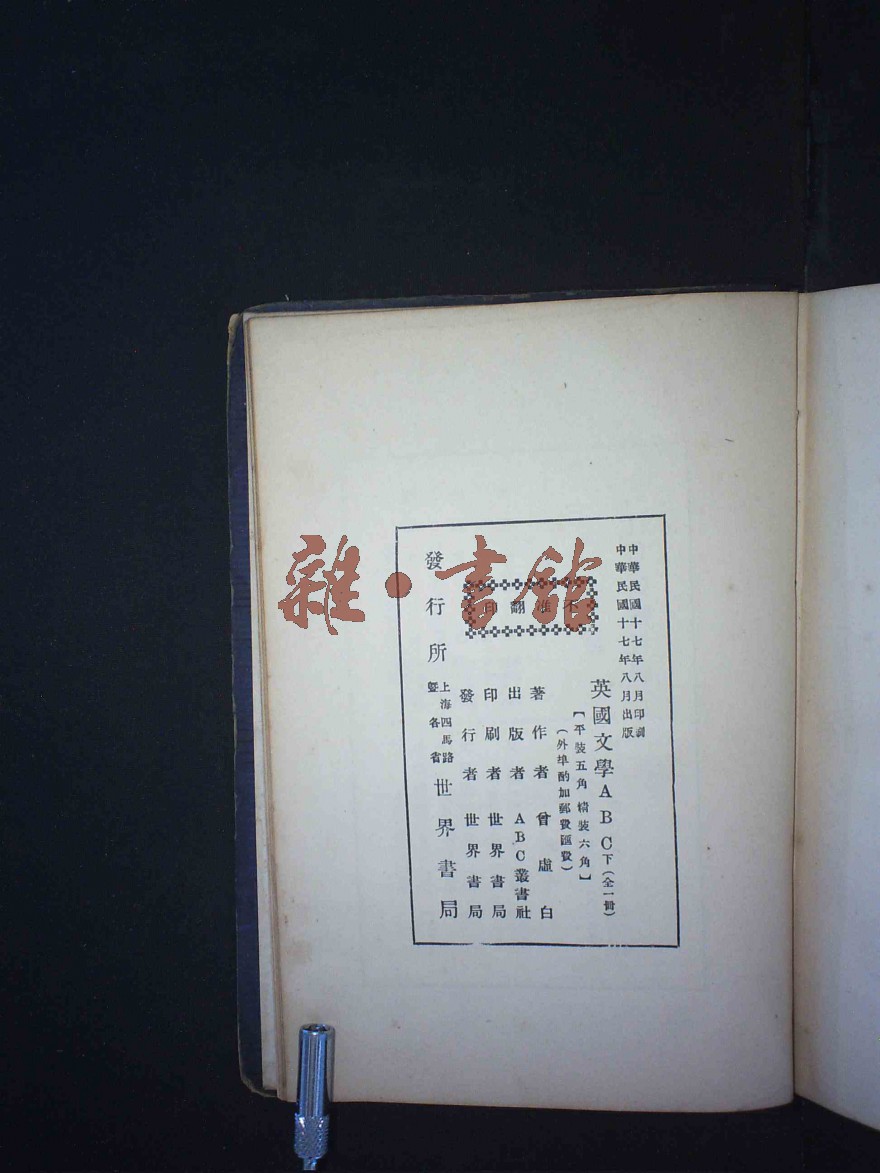 中華民國十七年八月印刷
中華民國十七年八月出版
英國文學ABC下(全一冊)
【平裝五角 精裝六角】
(外埠酌加郵費匯費)
不准翻印
著作者 曾虛白
出版者 ABC叢書社
印刷者 世界書局
發行者 世界書局
發行所 上海四馬路暨各省 世界書局
雜·書館